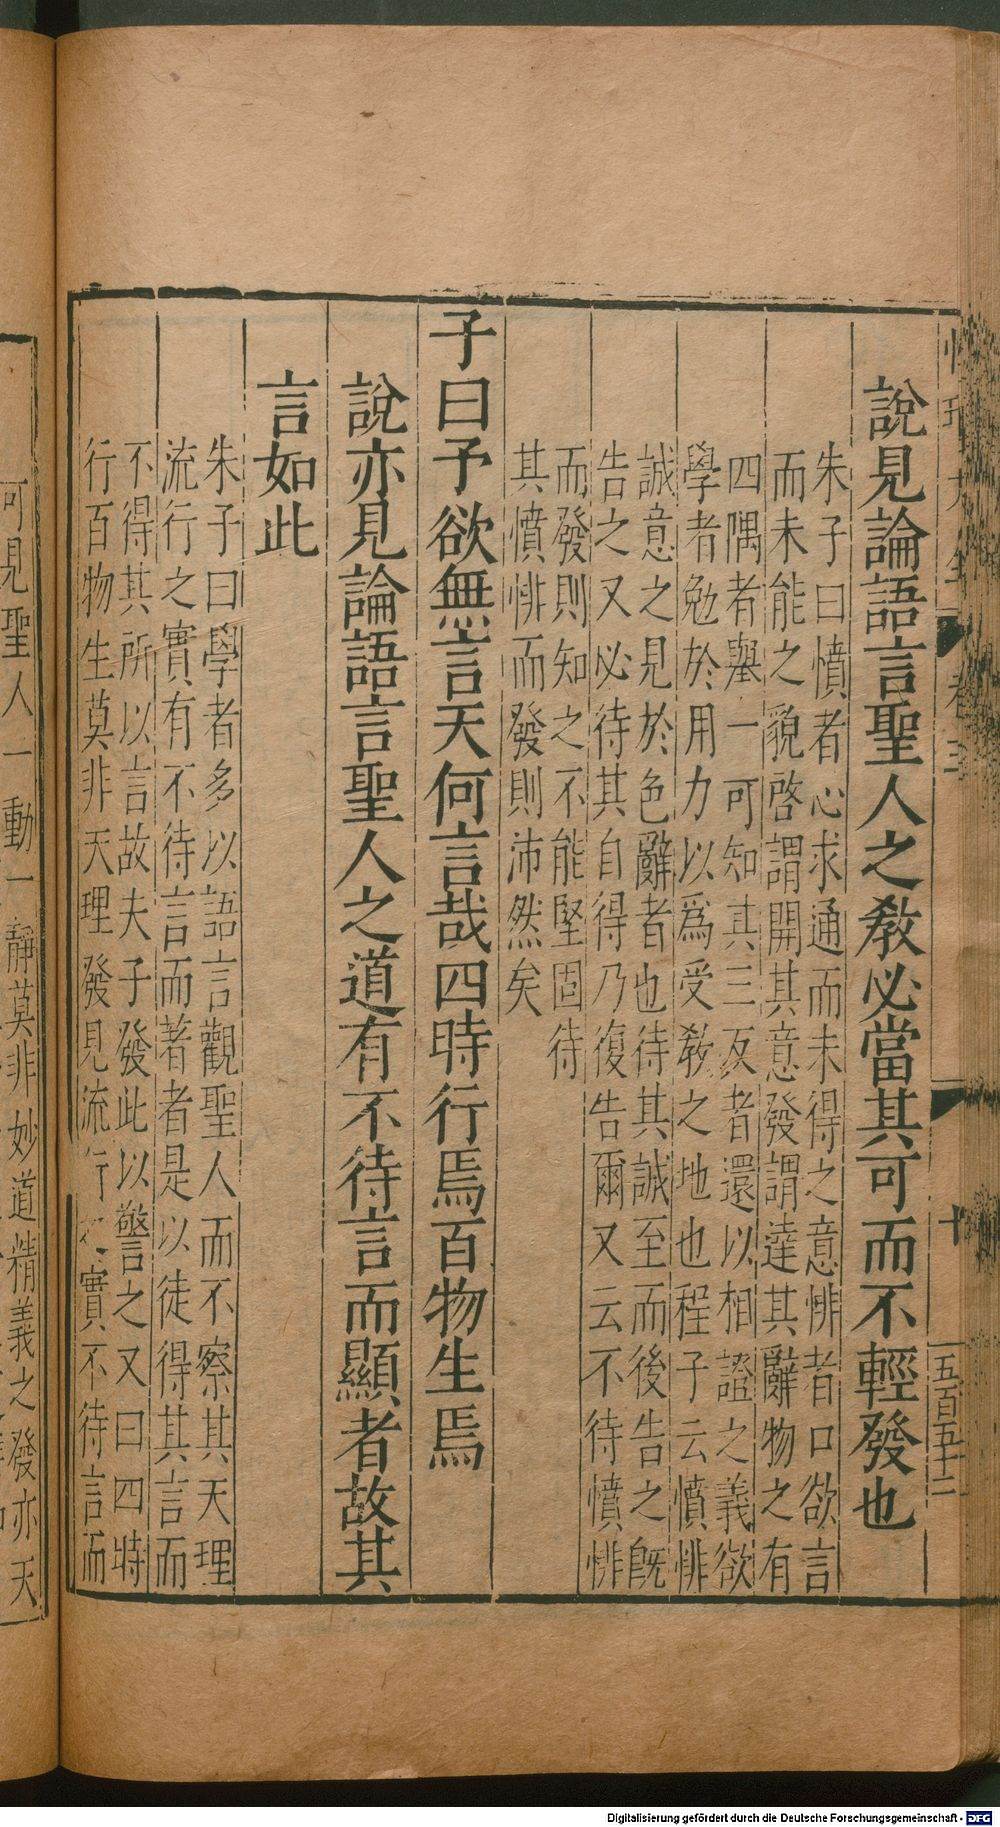 說見論語言聖人之教必當其可而不輕發也
朱子曰憤者心求通而未得之意悱者口欲言
而未能之貌啓謂開其意發謂達其辭物之有
四隅者舉一可知其三反者還以相證之義欲
學者勉於用力以爲受教之地也程子云憤悱
誠意之見於色辭者也待其誠至而後告之旣
告之又必待其自得乃復告爾又云不待憤悱
而發則知之不能堅固待
其憤悱而發則沛然矣
子曰予欲無言天何言哉四時行焉百物生焉
說亦見論語言聖人之道有不待言而顯者故其
言如此
朱子曰學者多以語言觀聖人而不察其天理
流行之實有不待言而著者是以徒得其言而
不得其所以言故夫子發此以警之又曰四時
行百物生莫非天理發見流行之實不待言而
可見聖人一動一靜莫非妙道精義之發亦天
卷三
十
五百五十二
Digitalisierung gefördert durch die Deutsche Forschungsgemeinschaft - DFG